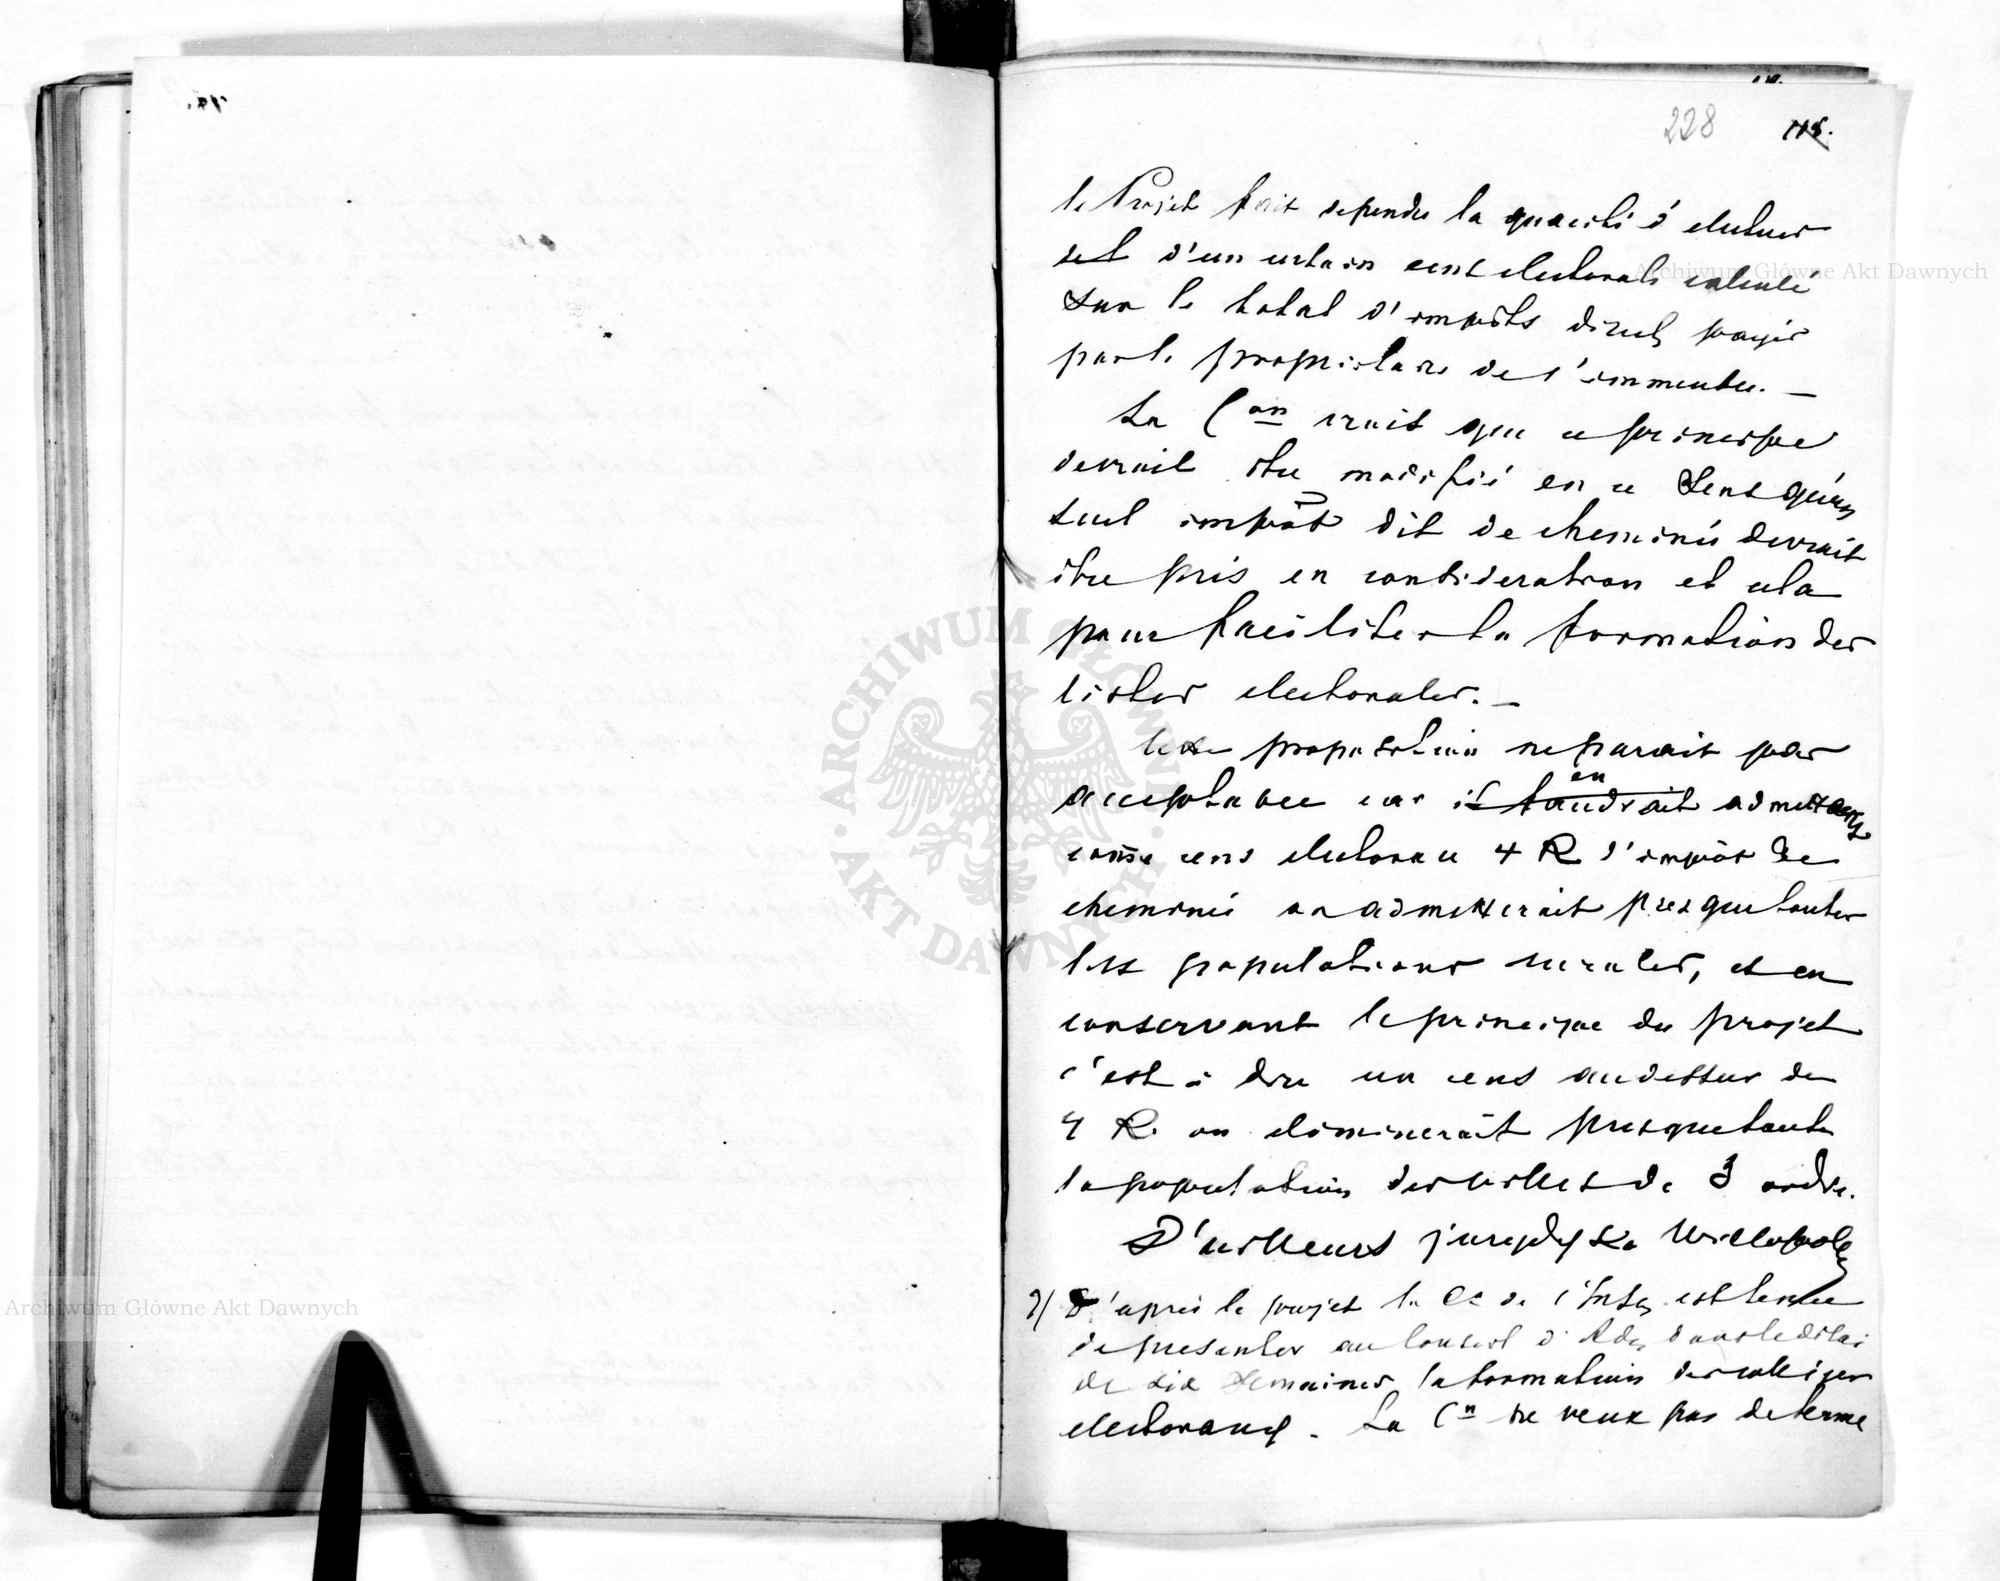 228 118.
le Projet fait dependre la qualité d'electeur
et d'un certain cens electorale calculé
sur le total d'impôts direct payés
par le proprietaire de l'immeuble. —
La Con croit que ce principe
devrait etre modifié en ce sens qu'un
seul impôt dit de cheminé devrait
être pris en consideration et cela
pour faciliter la formation des
listes electorales. —
Cette proposition ne parait pas
acceptable car il faudrait en admettant
comme cens electorale 4 R d'impôt de
cheminé on admetterait presque toutes
les populations rurales, et en
conservant le principe du projet
c'est à dire un cens audessus de
4 R. on eliminerait presque toute
la population des villes de 3 ordre.
D'ailleurs
2/ D'après le projet la Cs de l'Int est tenue
de presenter au Conseil d'Adm dans le délai
de six semaines la formation des colleges
electoraux. La Cn ne veux pas de terme
Archiwum Główne Akt Dawnych
ARCHIWUM GŁÓWNE · AKT DAWNYCH ·
Archiwum Główne Akt Dawnych